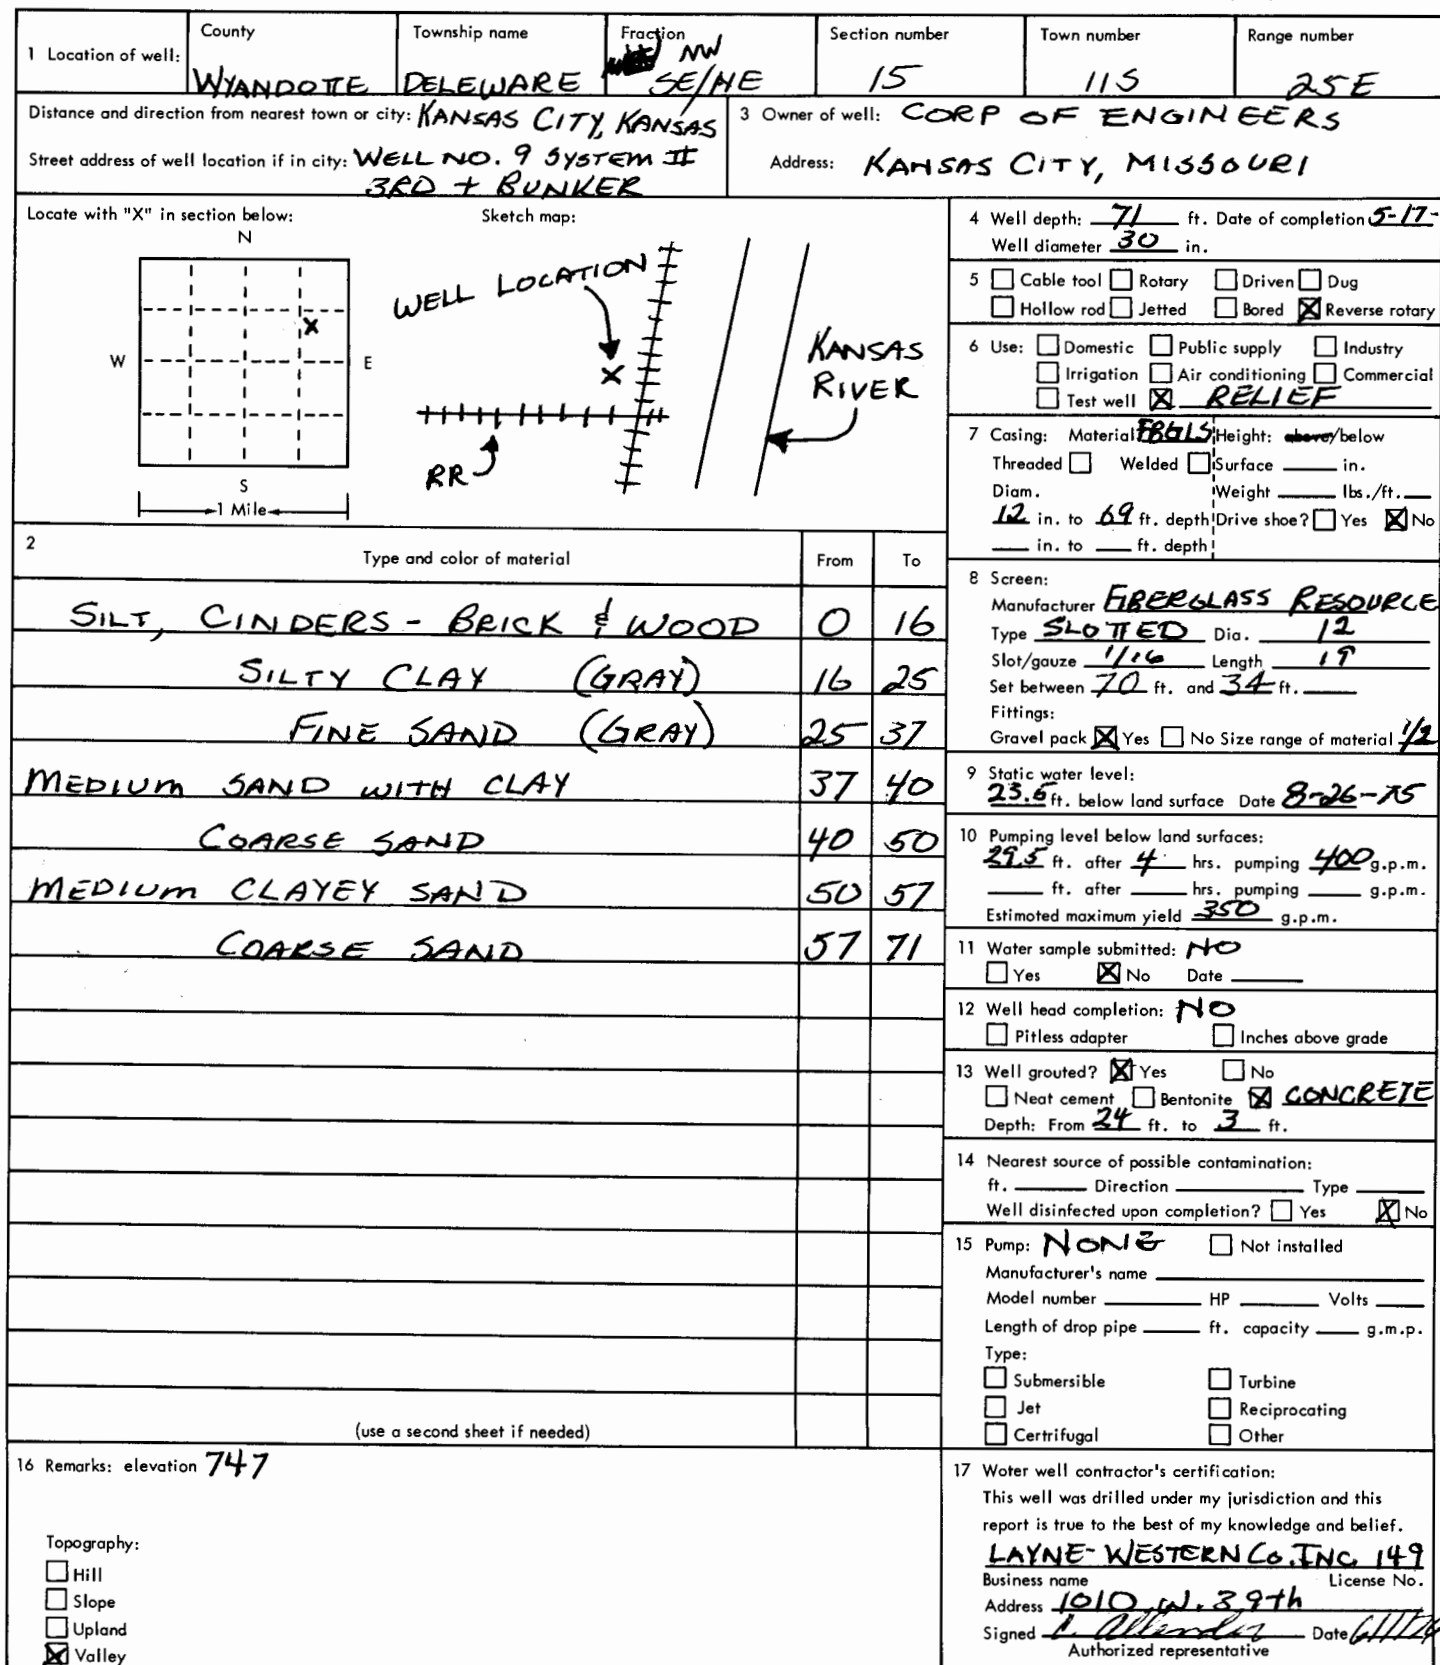 County Township name Fraction Section number Town number Range number
1 Location of well: WYANDOTTE DELEWARE NW SE/NE 15 11S 25E
Distance and direction from nearest town or city: KANSAS CITY, KANSAS
Street address of well location if in city: WELL NO. 9 SYSTEM II
3RD + BUNKER
3 Owner of well: CORP OF ENGINEERS
Address: KANSAS CITY, MISSOURI
Locate with "X" in section below: Sketch map:
N
X
W E
S
1 Mile
WELL LOCATION
X
KANSAS
RIVER
RR
2 Type and color of material From To
SILT, CINDERS - BRICK & WOOD 0 16
SILTY CLAY (GRAY) 16 25
FINE SAND (GRAY) 25 37
MEDIUM SAND WITH CLAY 37 40
COARSE SAND 40 50
MEDIUM CLAYEY SAND 50 57
COARSE SAND 57 71
(use a second sheet if needed)
16 Remarks: elevation 747
Topography:
Hill
Slope
Upland
Valley
4 Well depth: 71 ft. Date of completion 5-17-
Well diameter 30 in.
5 Cable tool Rotary Driven Dug
Hollow rod Jetted Bored Reverse rotary
6 Use: Domestic Public supply Industry
Irrigation Air conditioning Commercial
Test well RELIEF
7 Casing: Material FBGLS Height: above/below
Threaded Welded Surface in.
Diam. Weight lbs./ft.
12 in. to 69 ft. depth Drive shoe? Yes No
in. to ft. depth
8 Screen:
Manufacturer FIBERGLASS RESOURCE
Type SLOTTED Dia. 12
Slot/gauze 1/16 Length 19
Set between 70 ft. and 34 ft.
Fittings:
Gravel pack Yes No Size range of material 1/2
9 Static water level:
23.5 ft. below land surface Date 8-26-75
10 Pumping level below land surfaces:
29.5 ft. after 4 hrs. pumping 400 g.p.m.
ft. after hrs. pumping g.p.m.
Estimoted maximum yield 350 g.p.m.
11 Water sample submitted: NO
Yes No Date
12 Well head completion: NO
Pitless adapter Inches above grade
13 Well grouted? Yes No
Neat cement Bentonite CONCRETE
Depth: From 24 ft. to 3 ft.
14 Nearest source of possible contamination:
ft. Direction Type
Well disinfected upon completion? Yes No
15 Pump: NONE Not installed
Manufacturer's name
Model number HP Volts
Length of drop pipe ft. capacity g.m.p.
Type:
Submersible Turbine
Jet Reciprocating
Certrifugal Other
17 Woter well contractor's certification:
This well was drilled under my jurisdiction and this
report is true to the best of my knowledge and belief.
LAYNE-WESTERN CO. INC. 149
Business name License No.
Address 1010 W. 39th
Signed Allender Date
Authorized representative